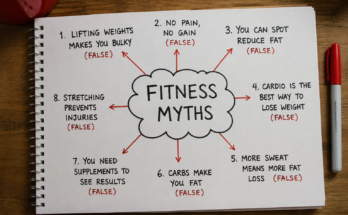 FITNESS
MYTHS
1. LIFTING WEIGHTS
MAKES YOU BULKY
(FALSE)
2. NO PAIN,
NO GAIN
(FALSE)
3. YOU CAN SPOT
REDUCE FAT
(FALSE)
4. CARDIO IS THE
BEST WAY TO
LOSE WEIGHT
(FALSE)
5. MORE SWEAT
MEANS MORE FAT
LOSS (FALSE)
6. CARBS MAKE
YOU FAT
(FALSE)
7. YOU NEED
SUPPLEMENTS TO
SEE RESULTS
(FALSE)
8. STRETCHING
PREVENTS
INJURIES
(FALSE)